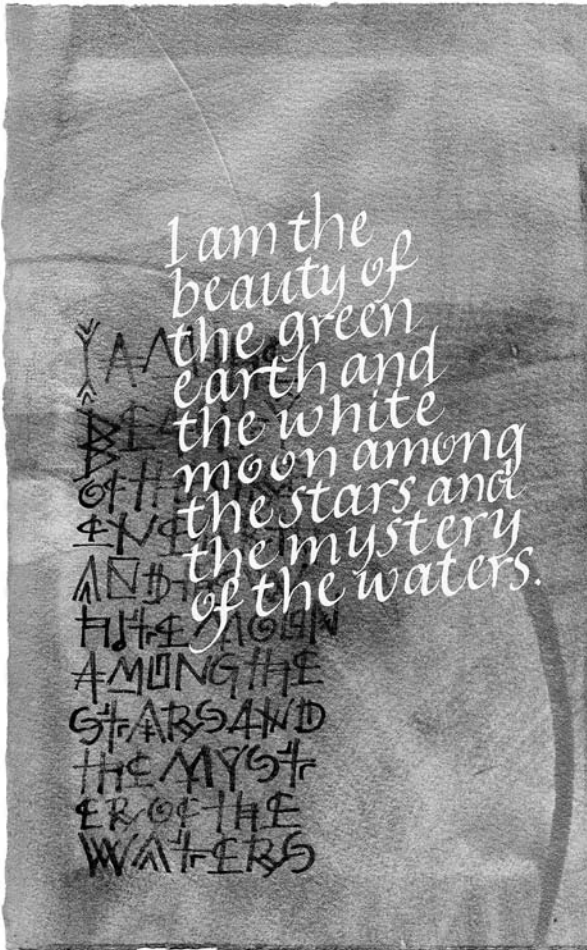 I am the
beauty of
the green
earth and
the white
moon among
the stars and
the mystery
of the waters.
I AM THE
BEAUTY
OF THE GRE
EN EARTH
AND THE W
HITE MOON
AMONG THE
STARS AND
THE MYST
ER OF THE
WATERS